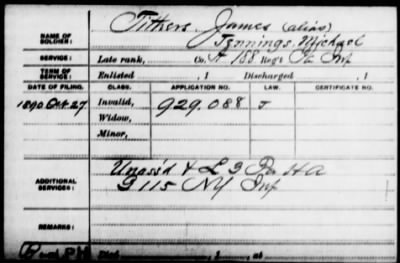 Tithers, James (alias)
NAME OF SOLDIER: Jennings, Michael
SERVICE: Late rank, Co. A 188 Reg't Pa Inf
TERM OF SERVICE: Enlisted , 1 Discharged , 1
DATE OF FILING. CLASS. APPLICATION NO. LAW. CERTIFICATE NO.
1890 Oct 27 Invalid, 929.088 J
Widow,
Minor,
ADDITIONAL SERVICES: Unas'd & L 3 Pa HA
G 115 NY Inf
REMARKS:
Died , 1 , at